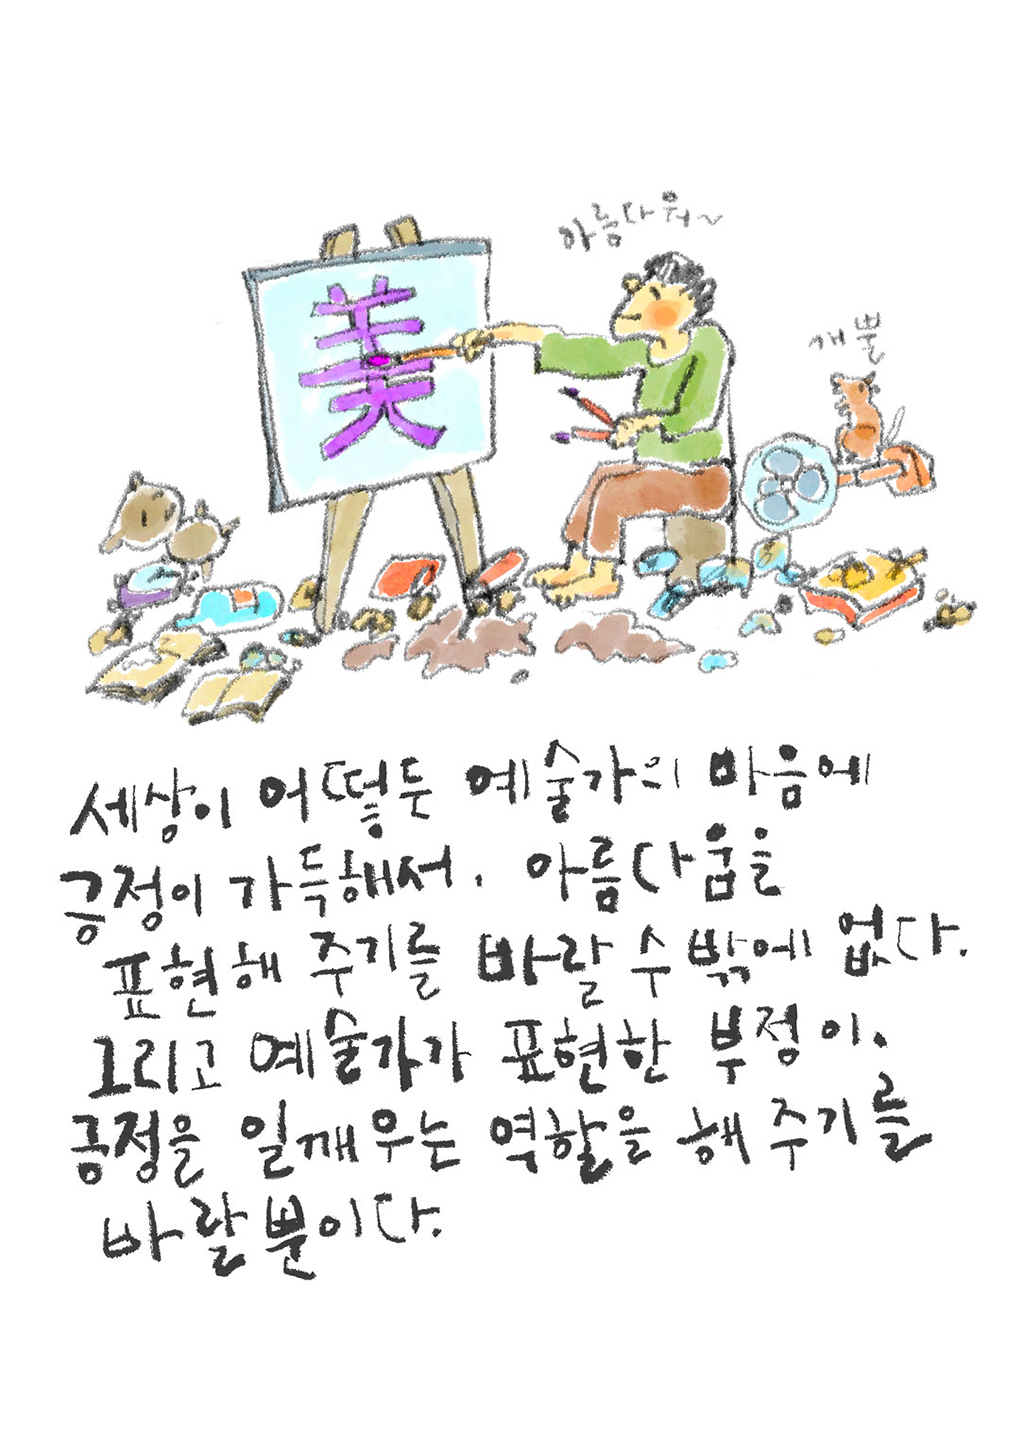 아름다워~
美
개뿔
세상이 어떻든 예술가의 마음에
긍정이 가득해서, 아름다움을
표현해 주기를 바랄 수밖에 없다.
그리고 예술가가 표현한 부정이,
긍정을 일깨우는 역할을 해 주기를
바랄 뿐이다.